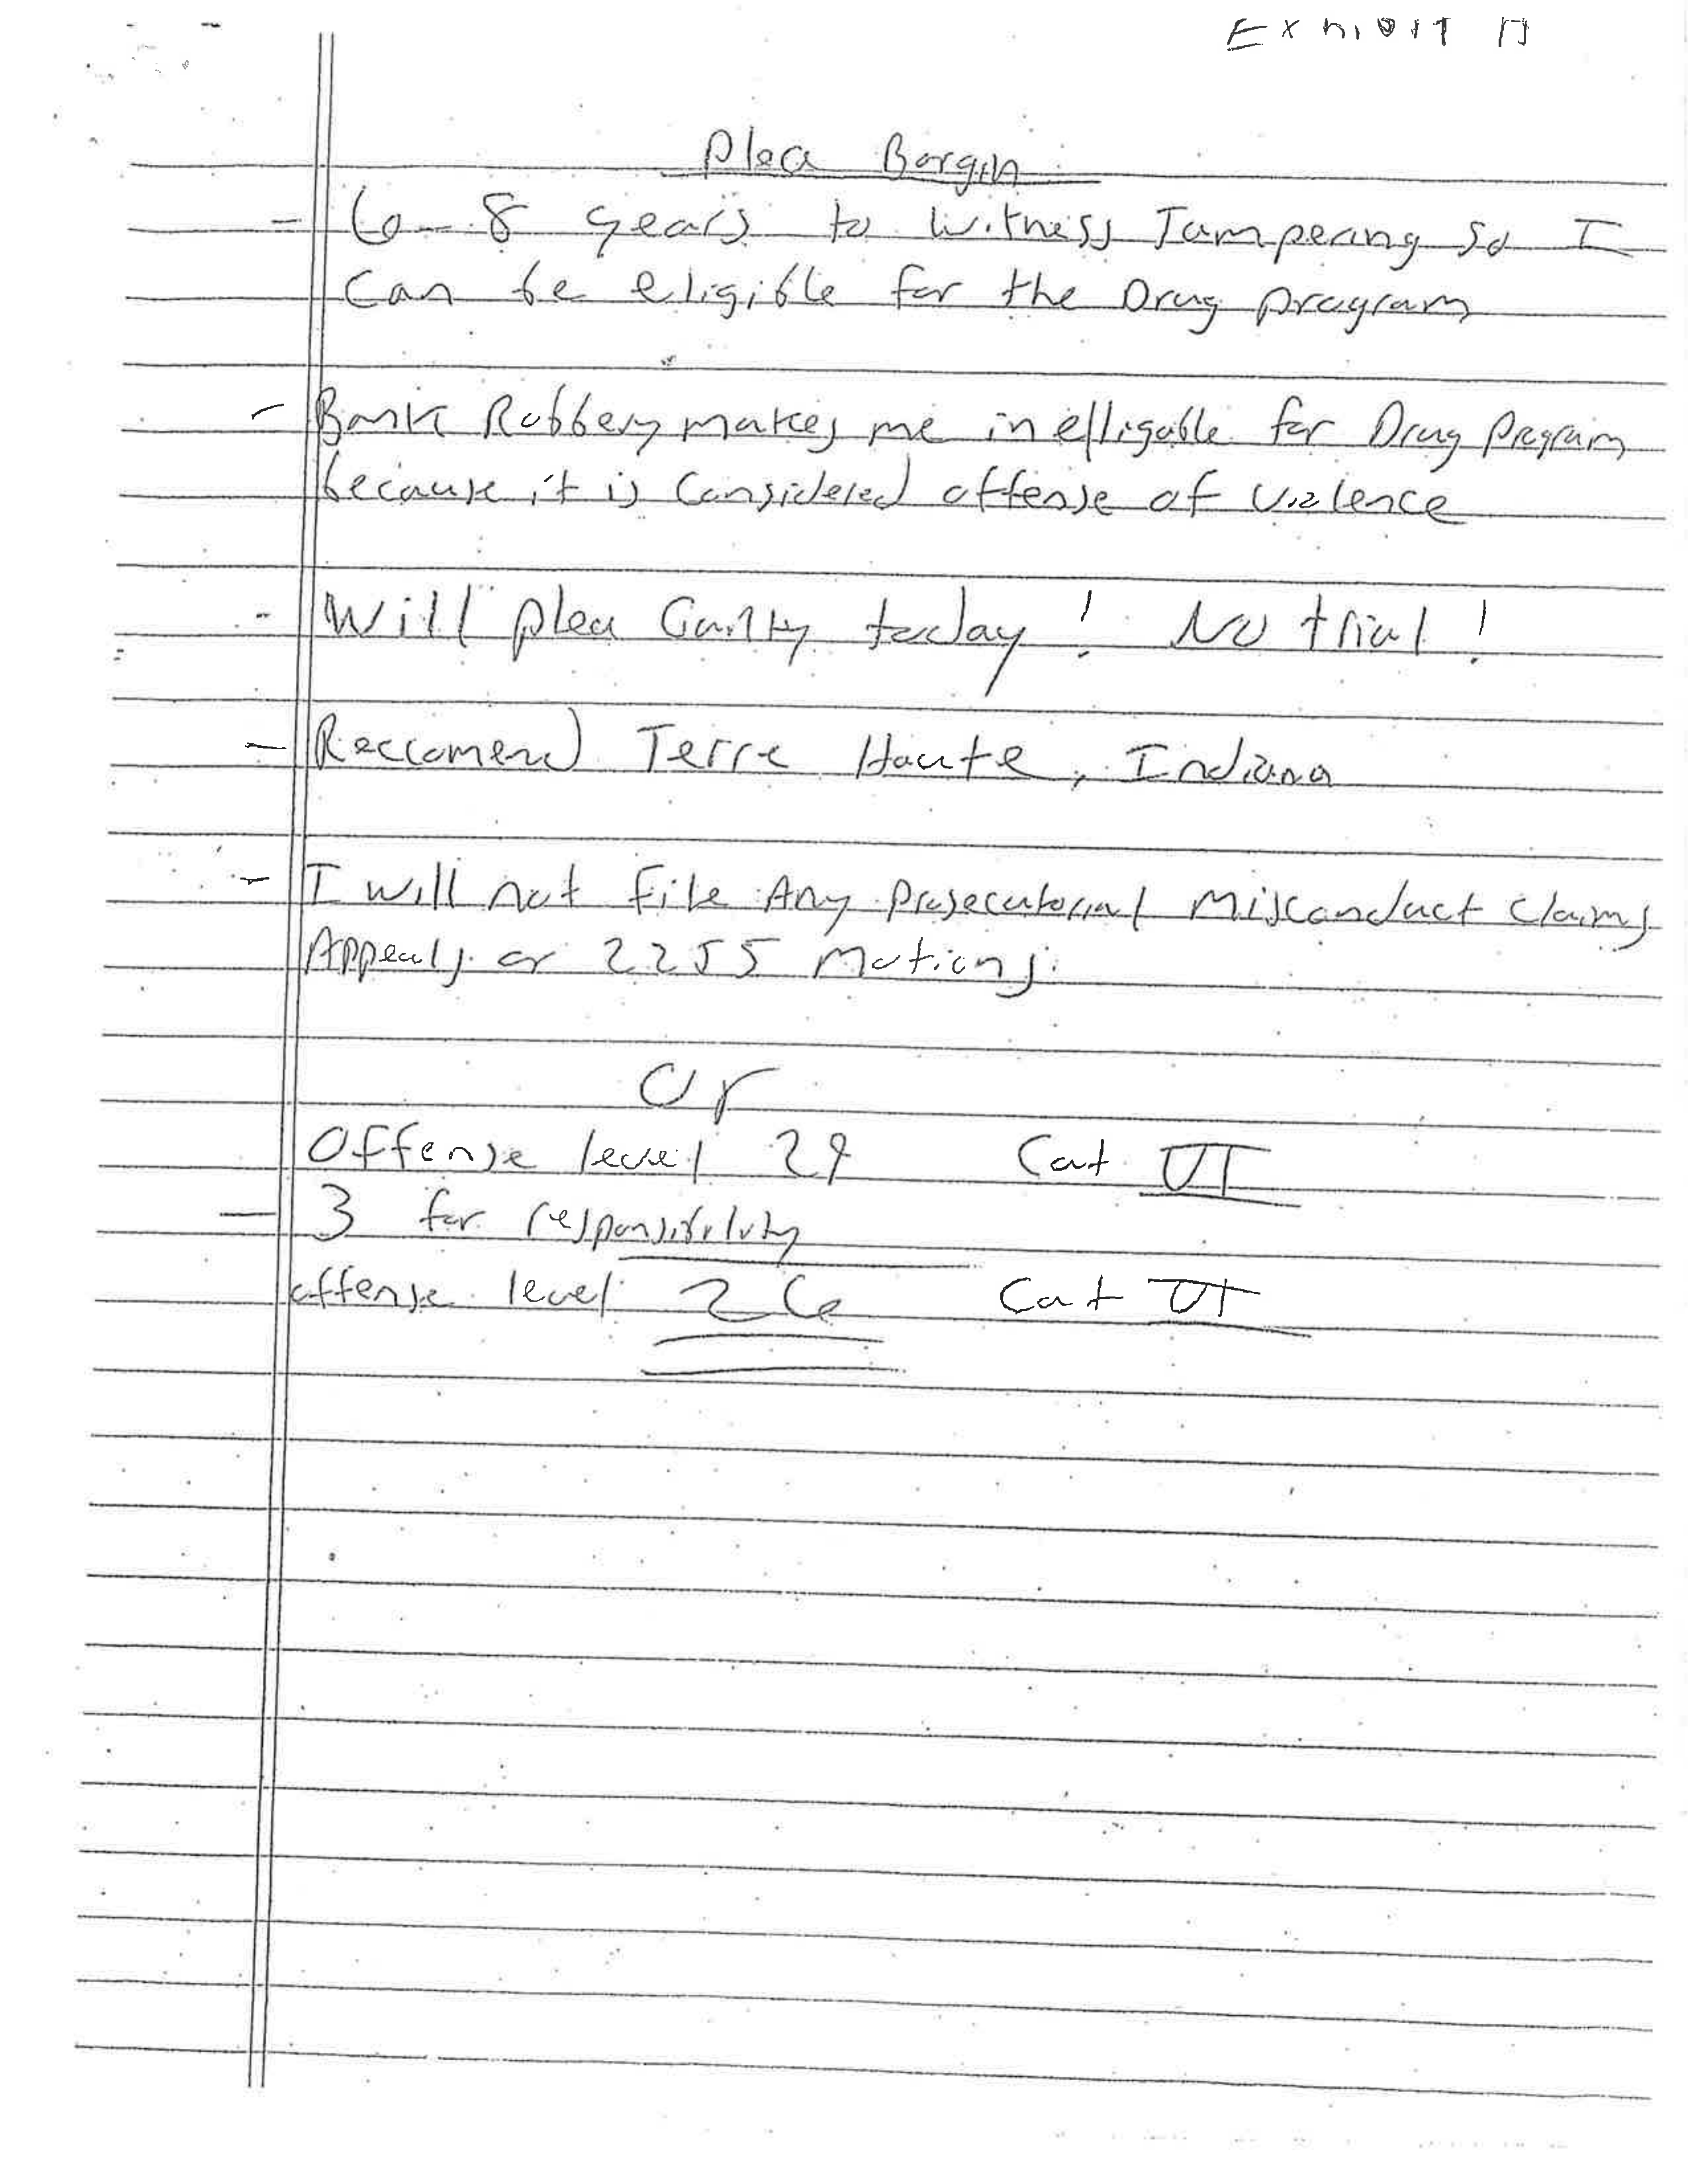 Exhibit A
Plea Bargin
- 6-8 years to Witness Tampering so I
can be eligible for the Drug program
- Bank Robbery makes me inelligable for Drug Program
because it is considered offense of violence
- Will plea Guilty today! No trial!
- Reccomend Terre Haute, Indiana
- I will not file Any prosecutorial Misconduct Claims
Appeals or 2255 Motions.
or
Offense level 29 Cat VI
- 3 for responsibility
offense level 26 Cat VI